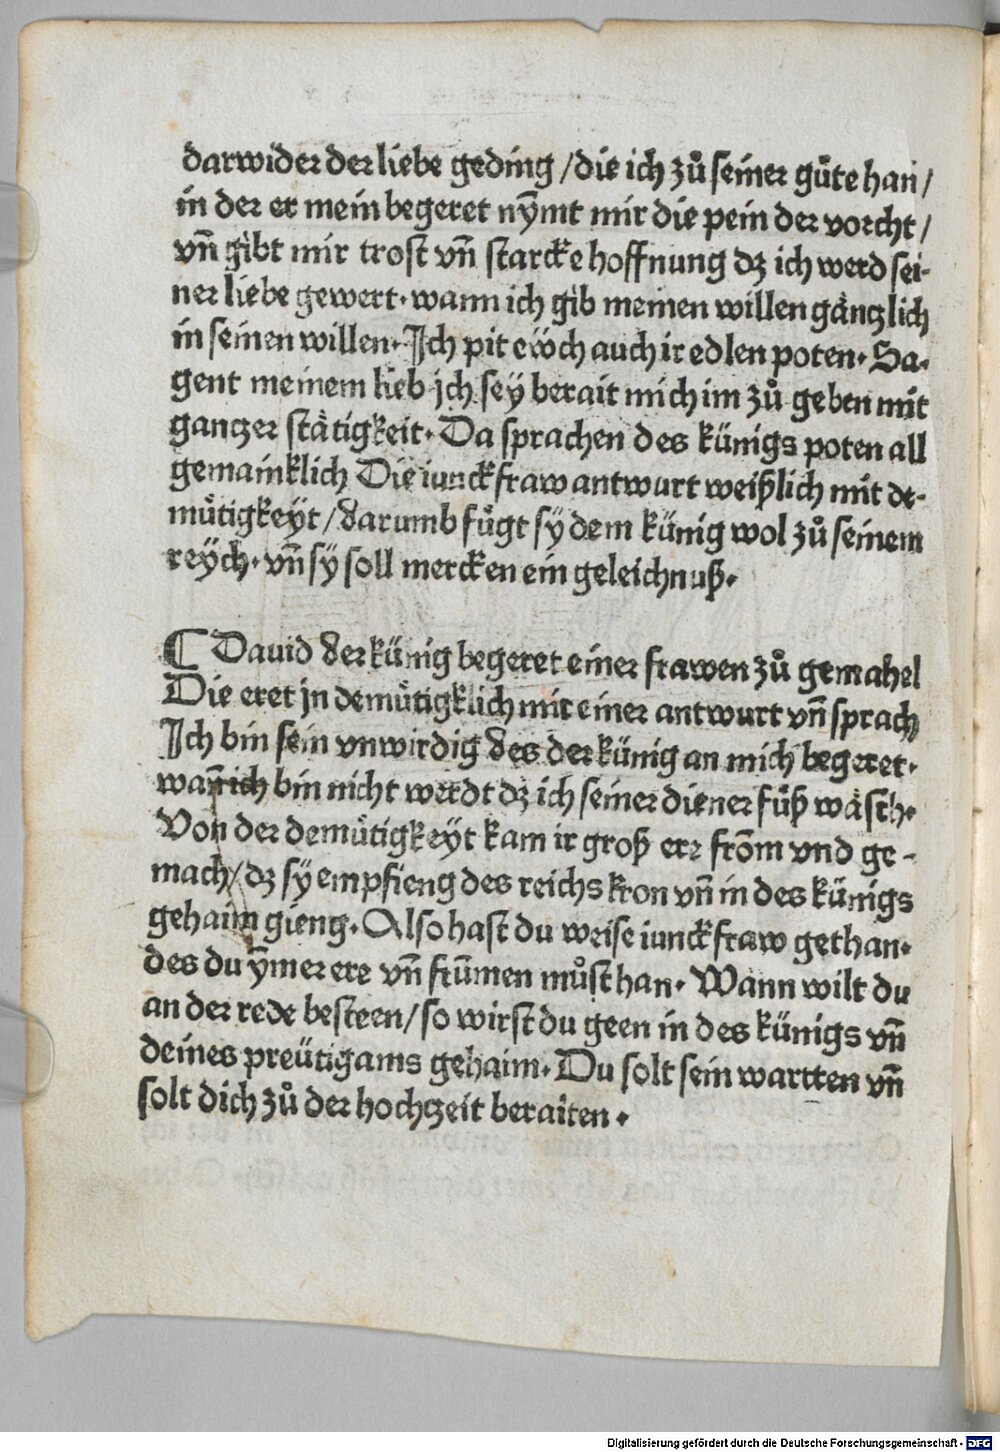 darwider der liebe geding / die ich zů seiner gůte han /
in der er mein begeret nÿmt mir die pein der vorcht /
vñ gibt mir trost vñ starcke hoffnung dz ich werd sei-
ner liebe gewert. wann ich gib meinen willen gäntzlich
in seinen willen. Ich pit ewch auch ir edlen poten. Sa-
gent meinem lieb jch sey berait mich im zů geben mit
gantzer stätigkeit. Da sprachen des künigs poten all
gemainklich Die iunckfraw antwurt weißlich mit de-
můtigkeyt / darumb fůgt sy dem künig wol zů seinem
reych. vñ sy soll mercken ein geleichnuß.
¶ Dauid der künig begeret einer frawen zů gemahel
Die eret jn demůtigklich mit einer antwurt vñ sprach
Ich bin sein vnwirdig des der künig an mich begeret.
wañ ich bin nicht werdt dz ich seiner diener fůß wäsch.
Von der demůtigkeyt kam ir groß ere from̄ vnd ge-
mach / dz sy empfieng des reichs kron vñ in des künigs
gehaim gieng. Also hast du weise iunckfraw gethan.
des du ÿmer ere vñ frum̄en můst han. Wann wilt du
an der rede besteen / so wirst du geen in des künigs vñ
deines preütigams gehaim. Du solt sein wartten vñ
solt dich zů der hochzeit beraiten.
Digitalisierung gefördert durch die Deutsche Forschungsgemeinschaft - DFG